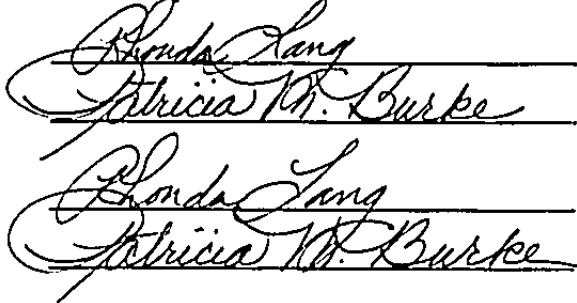 Rhonda Lang
Patricia M. Burke
Rhonda Lang
Patricia M. Burke